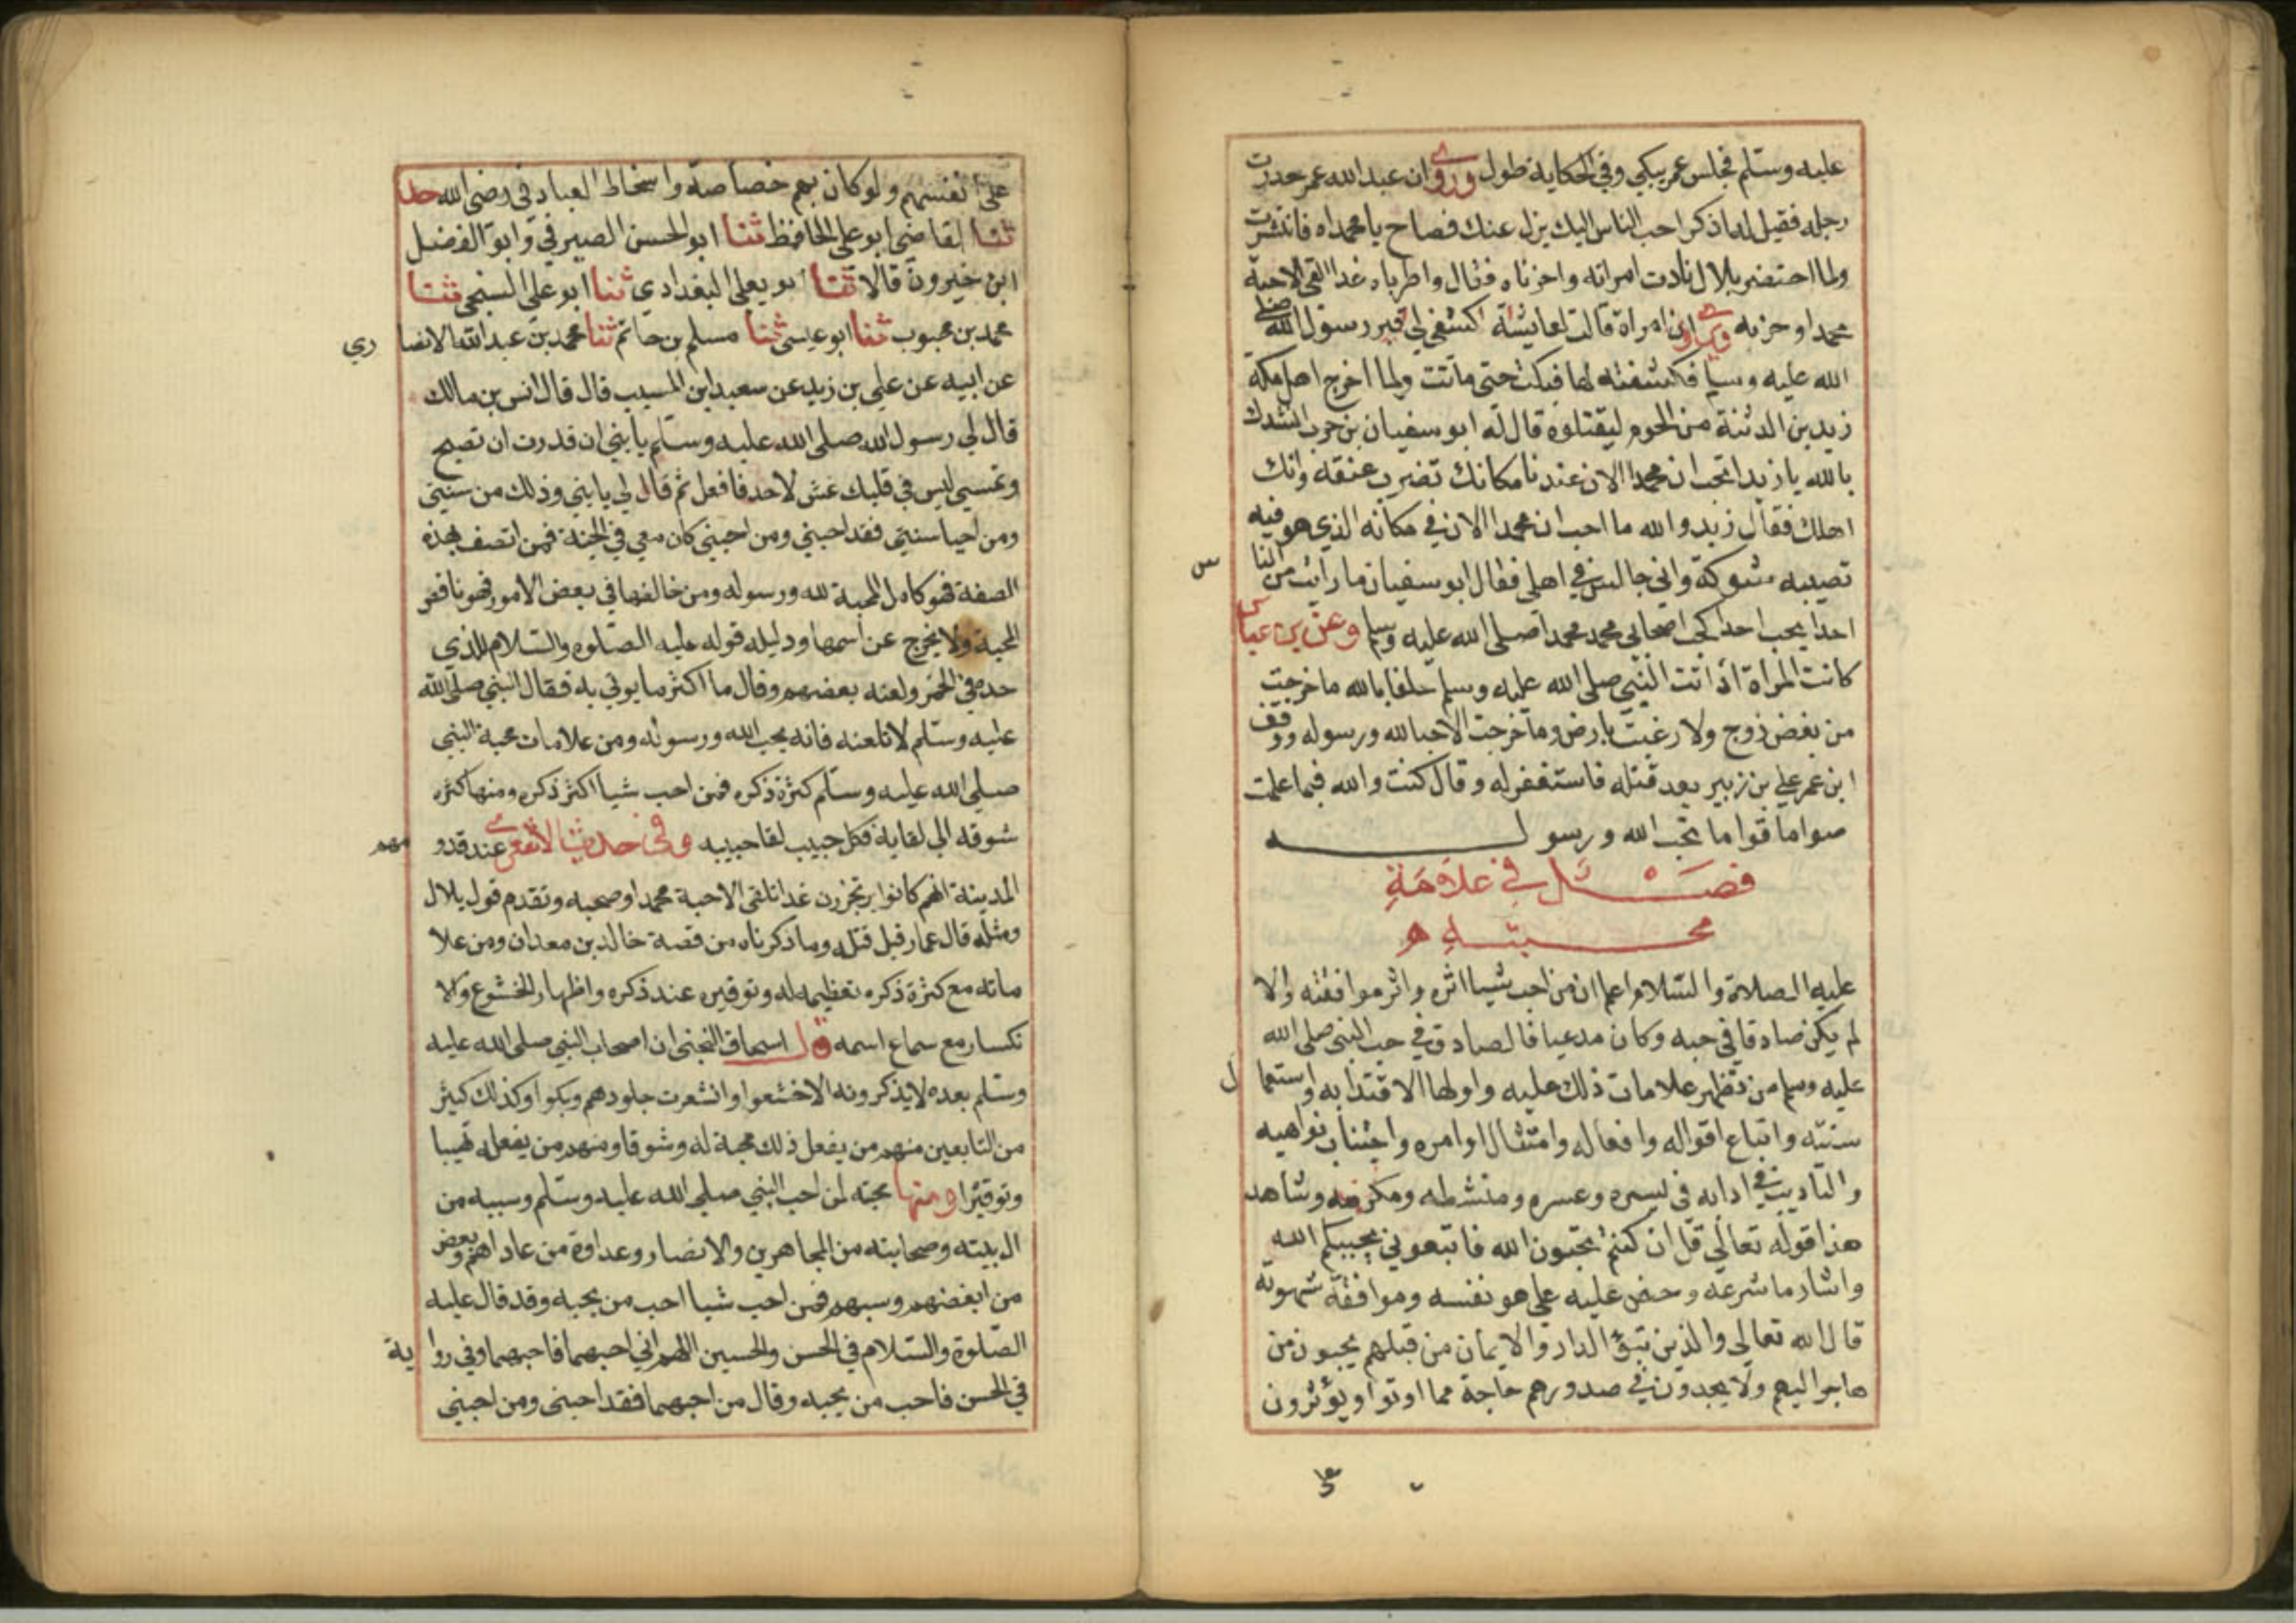 عليه وسلم فجلس عمر يبكي وفي الحكاية طول وروي ان عبد الله عمر خدرت
رجله فقيل له اذكر احب الناس اليك يزل عنك فصاح يا محمداه فانتشرت
ولما احتضر بلال نادت امراته واحزناه فقال واطرباه غدا القى الاحبة
محمدا وحزبه ويروى ان امراة قالت لعايشة اكشفي لي قبر رسول الله صلى
الله عليه وسلم فكشفته لها فبكت حتى ماتت ولما اخرج اهل مكة
زيد بن الدثنة من الحرم ليقتلوه قال له ابو سفيان بن حرب انشدك
بالله يا زيد اتحب ان محمدا الان عندنا مكانك تضرب عنقه وانك
اهلك فقال زيد والله ما احب ان محمدا الان في مكانه الذي هو فيه
تصيبه شوكة واني جالس في اهلي فقال ابو سفيان ما رايت من النا
س
احدا يحب احدا كحب اصحاب محمد محمدا صلى الله عليه وسلم وعن بن عباس
كانت المراة اذا اتت النبي صلى الله عليه وسلم حلفها بالله ما خرجت
من بغض زوج ولا رغبت بارض وما خرجت الا حبا لله ورسوله ووقف
ابن عمر علي بن زبير بعد قتله فاستغفر له وقال كنت والله فيما علمت
صواما قواما تحب الله ورسوله
فصل في علامة
محبته
عليه الصلاة والسلام اعلم ان من احب شيا اثره واثر موافقته والا
لم يكن صادقا في حبه وكان مدعيا فالصادق في حب النبي صلى الله
عليه وسلم من تظهر علامات ذلك عليه واولها الاقتدا به واستعما
ل
سنته واتباع اقواله وافعاله وامتثال اوامره واجتناب نواهيه
والتاديب في ادابه في يسره وعسره ومنشطه ومكرهه وشاهد
هذا قوله تعالى قل ان كنتم تحبون الله فاتبعوني يحببكم الله
واشار ما شرعه وحض عليه علي هو نفسه وموافقة شهوته
قال الله تعالى والذين تبوؤ الدار والايمان من قبلهم يحبون من
هاجر اليهم ولا يجدون في صدورهم حاجة مما اوتوا ويؤثرون
على انفسهم ولو كان بهم خصاصة واسخاط العباد في رضى الله حد
ثنا القاضي ابو علي الحافظ ثنا ابو الحسن الصيرفي وابو الفضل
ابن خيرون قالا ثنا ابو يعلى البغدادي ثنا ابو علي السنجي ثنا
محمد بن محبوب ثنا ابو عيسى ثنا مسلم بن حاتم ثنا محمد بن عبد الله الانصا
ري
عن ابيه عن علي بن زيد عن سعيد ابن المسيب قال قال انس بن مالك
قال لي رسول الله صلى الله عليه وسلم يا بني ان قدرت ان تصبح
وتمسي ليس في قلبك غش لاحد فافعل ثم قال لي يا بني وذلك من سنتي
ومن احيا سنتي فقد احبني ومن احبني كان معي في الجنة فمن اتصف بهذه
الصفة فهو كامل المحبة لله ورسوله ومن خالفها في بعض الامور فهو ناقص
المحبة ولا يخرج عن اسمها ودليله قوله عليه الصلوه والسلام للذي
حده في الخمر ولعنه بعضهم وقال ما اكثر ما يوتي به فقال النبي صلى الله
عليه وسلم لا تلعنه فانه يحب الله ورسوله ومن علامات محبة النبي
صلى الله عليه وسلم كثرة ذكره فمن احب شيا اكثر ذكره ومنها كثره
شوقه الي لقايه فكل حبيب لقا حبيبه وفي حديث الاشعري عند قدو
مهم
المدينة انهم كانوا يرتجزون غدا نلقى الاحبة محمدا وصحبه وتقدم قول بلال
ومثله قال عمار قبل قتله وما ذكرناه من قصة خالد بن معدان ومن علا
ماته مع كثرة ذكره تعظيمه له وتوقيره عند ذكره واظهار الخشوع والا
نكسار مع سماع اسمه قال اسحاق التجيبى ان اصحاب النبي صلى الله عليه
وسلم بعده لا يذكرونه الا خشعوا واقشعرت جلودهم وبكوا وكذلك كثير
من التابعين منهم من يفعل ذلك محبة له وشوقا ومنهم من يفعله تهيبا
وتوقيرا ومنها محبته لمن احب النبي صلى الله عليه وسلم وسببه من
ال بيته وصحابته من المهاجرين والانصار وعداوة من عاداهم وبغض
من ابغضهم وسبهم فمن احب شيا احب من يحبه وقد قال عليه
الصلوة والسلام في الحسن والحسين اللهم اني احبهما فاحبهما وفي روا
ية
في الحسن فاحب من يحبه وقال من احبهما فقد احبني ومن احبني